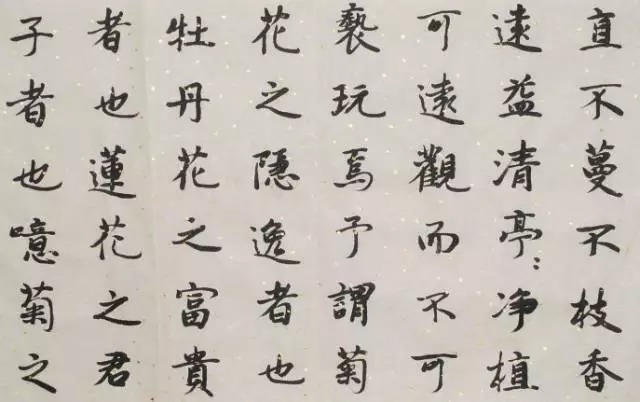 直不蔓不枝香
遠益清亭:净植
可遠觀而不可
褻玩焉予謂菊
花之隱逸者也
牡丹花之富貴
者也蓮花之君
子者也噫菊之